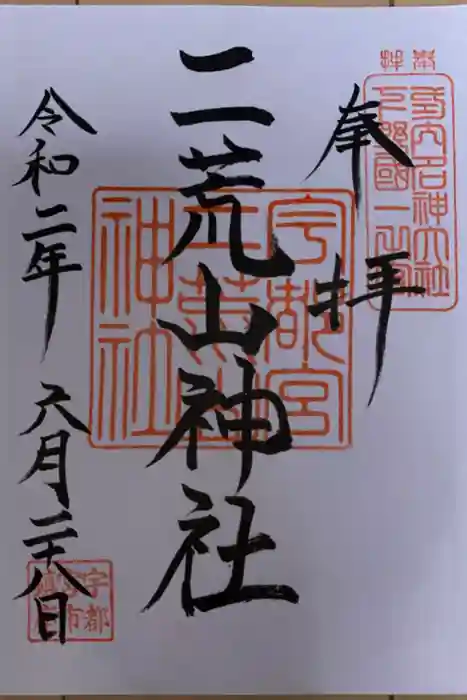 奉拝
奉拝
式内名神大社
下野國一之宮
二荒山神社
宇都宮
二荒山
神社
令和二年 六月二十八日